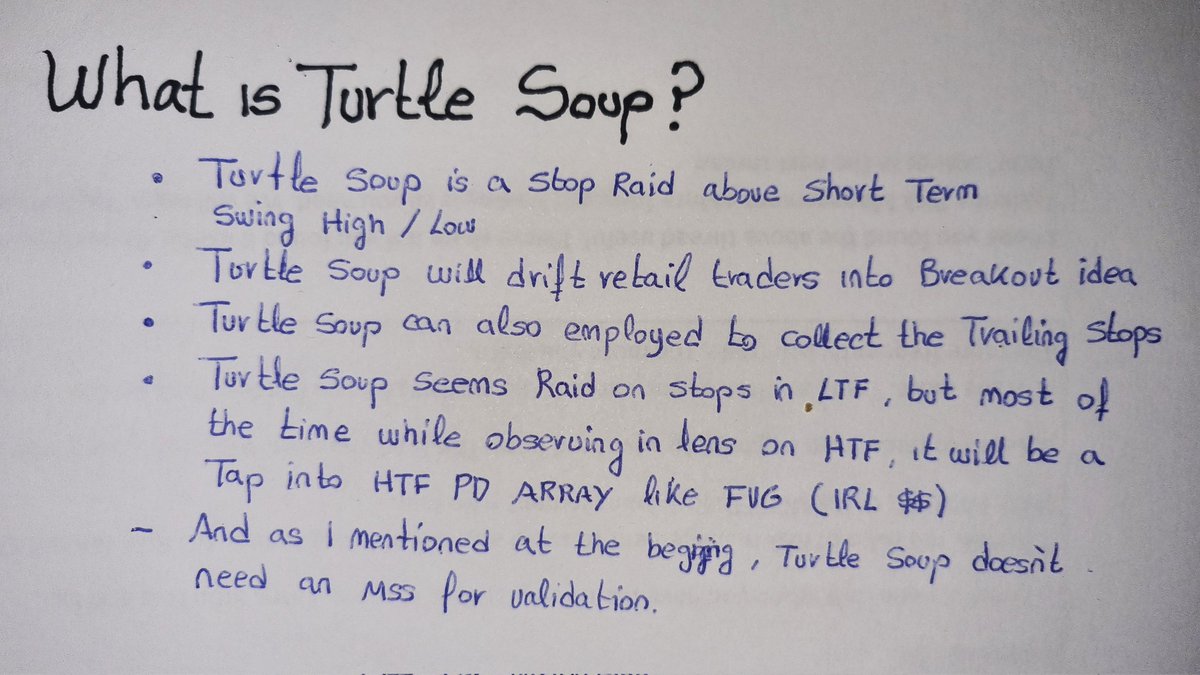 What is Turtle Soup?
• Turtle Soup is a Stop Raid above Short Term
Swing High / Low
• Turtle Soup will drift retail traders into Breakout idea
• Turtle Soup can also employed to collect the Trailing Stops
• Turtle Soup Seems Raid on stops in LTF, but most of
the time while observing in lens on HTF, it will be a
Tap into HTF PD ARRAY like FVG (IRL $$)
- And as i mentioned at the, Turtle Soup doesn't
need an MSS for validation.